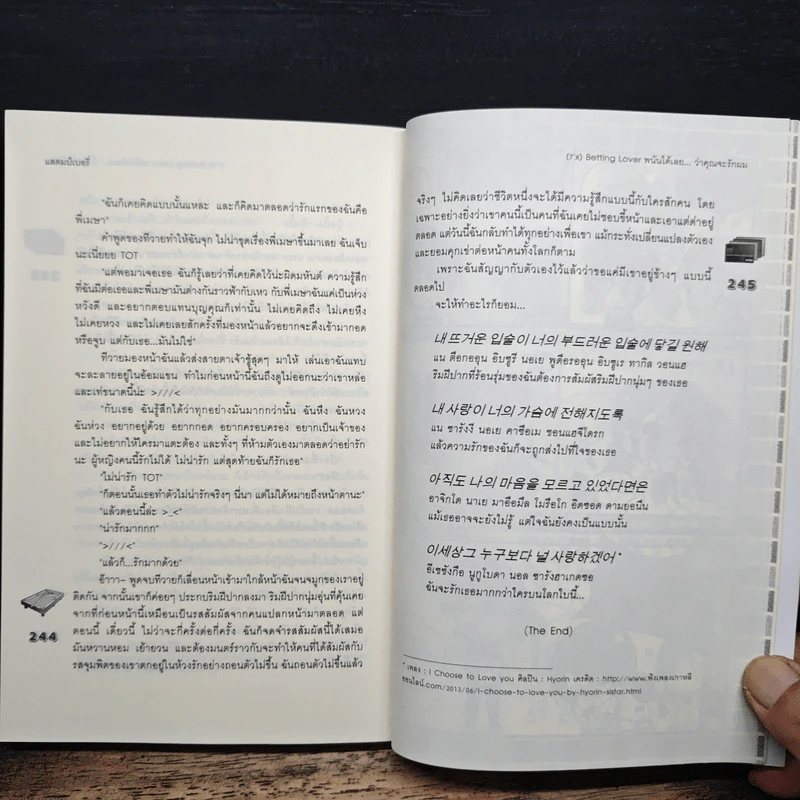 แสตมป์เบอรี่
"ฉันก็เคยคิดแบบนั้นแหละ และก็คิดมาตลอดว่ารักแรกของฉันคือ
พี่เมษา"
คำพูดของทีวายทำให้ฉันจุก ไม่น่าขุดเรื่องพี่เมษาขึ้นมาเลย ฉันเจ็บ
นะเนี่ยยย TOT
"แต่พอมาเจอเธอ ฉันก็รู้เลยว่าที่เคยคิดไว้น่ะผิดมหันต์ ความรู้สึก
ที่ฉันมีต่อเธอและพี่เมษามันต่างกันราวฟ้ากับเหว กับพี่เมษาฉันแค่เป็นห่วง
หวังดี และอยากตอบแทนบุญคุณก็เท่านั้น ไม่เคยคิดถึง ไม่เคยหึง
ไม่เคยหวง และไม่เคยเลยสักครั้งที่มองหน้าแล้วอยากจะดึงเข้ามากอด
หรือจูบ แต่กับเธอ...มันไม่ใช่"
ทีวายมองหน้าฉันแล้วส่งสายตาเจ้าชู้สุดๆ มาให้ เล่นเอาฉันแทบ
จะละลายอยู่ในอ้อมแขน ทำไมก่อนหน้านี้ฉันถึงดูไม่ออกนะว่าเขาหล่อ
และเท่ขนาดนี้น่ะ >///<
"กับเธอ ฉันรู้สึกได้ว่าทุกอย่างมันมากกว่านั้น ฉันหึง ฉันหวง
ฉันห่วง อยากอยู่ด้วย อยากกอด อยากครอบครอง อยากเป็นเจ้าของ
และไม่อยากให้ใครมาแตะต้อง และทั้งๆ ที่ห้ามตัวเองมาตลอดว่าอย่ารัก
นะ ผู้หญิงคนนี้รักไม่ได้ ไม่น่ารัก แต่สุดท้ายฉันก็รักเธอ"
"ไม่น่ารัก TOT"
"ก็ตอนนั้นเธอทำตัวไม่น่ารักจริงๆ นี่นา แต่ไม่ได้หมายถึงหน้าตานะ"
"แล้วตอนนี้ล่ะ >_<"
"น่ารักมากกก"
">///<"
"แล้วก็...รักมากด้วย"
อ๊าาา~ พูดจบทีวายก็เลื่อนหน้าเข้ามาใกล้หน้าฉันจนจมูกของเราอยู่
ติดกัน จากนั้นเขาก็ค่อยๆ ประกบริมฝีปากลงมา ริมฝีปากนุ่มอุ่นที่คุ้นเคย
จากที่ก่อนหน้านี้เหมือนเป็นรสสัมผัสจากคนแปลกหน้ามาตลอด แต่
ตอนนี้ เดี๋ยวนี้ ไม่ว่าจะกี่ครั้งต่อกี่ครั้ง ฉันก็จดจำรสสัมผัสนี้ได้เสมอ
มันหวานหอม เย้ายวน และต้องมนตร์ราวกับจะทำให้คนที่ได้สัมผัสกับ
รสจุมพิตของเขาตกอยู่ในห้วงรักอย่างถอนตัวไม่ขึ้น ฉันถอนตัวไม่ขึ้นแล้ว
244
(7'x) Betting Lover พนันได้เลย... ว่าคุณจะรักผม
จริงๆ ไม่คิดเลยว่าชีวิตหนึ่งจะได้มีความรู้สึกแบบนี้กับใครสักคน โดย
เฉพาะอย่างยิ่งว่าเขาคนนี้เป็นคนที่ฉันเคยไม่ชอบขี้หน้าและเอาแต่ด่าอยู่
ตลอด แต่วันนี้ฉันกลับทำได้ทุกอย่างเพื่อเขา แม้กระทั่งเปลี่ยนแปลงตัวเอง
และยอมคุกเข่าต่อหน้าคนทั้งโลกก็ตาม
เพราะฉันสัญญากับตัวเองไว้แล้วว่าขอแค่มีเขาอยู่ข้างๆ แบบนี้
ตลอดไป
จะให้ทำอะไรก็ยอม...
245
내 뜨거운 입술이 너의 부드러운 입술에 닿길 원해
แน ตือกออุน อิบซูรี นอเย พูดือรออุน อิบซูเร ทากิล วอนแฮ
ริมฝีปากที่ร้อนรุ่มของฉันต้องการสัมผัสริมฝีปากนุ่มๆ ของเธอ
내 사랑이 너의 가슴에 전해지도록
แน ซารังงี นอเย คาซือเม ชอนแฮจีโดรก
แล้วความรักของฉันก็จะถูกส่งไปที่ใจของเธอ
아직도 나의 마음을 모르고 있었다면은
อาจิกโด นาเย มาอึมมึล โมรือโก อิดซอด ดามยอนึน
แม้เธออาจจะยังไม่รู้ แต่ใจฉันยังคงเป็นแบบนั้น
이세상그 누구보다 널 사랑하겠어*
อีเซซังกือ นูกูโบดา นอล ซารังฮาเกดซอ
ฉันจะรักเธอมากกว่าใครบนโลกใบนี้...
(The End)
* เพลง : I Choose to Love you ศิลปิน : Hyorin เครดิต : http://www.ฟังเพลงเกาหลี
ออนไลน์.com/2013/06/i-choose-to-love-you-by-hyorin-sistar.html